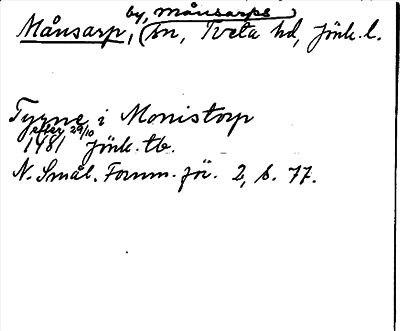 by, Månsarps
Månsarp, (sn, Tveta hd, Jönk. l.
Tyrne i Monistorp
efter 29/10
1481 Jönk. tb.
N. Smål. Fornm. för. 2, s. 77.